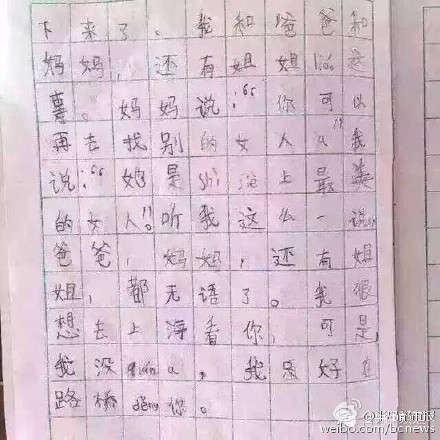 下来了。我和爸爸和
妈妈，还有姐姐liáo这
事。妈妈说:“你可以
再去找别的女人a”我
说:“她是shì jiè上最美
的女人”。听我这么一说，
爸爸，妈妈，还有姐
姐，都无语了。我很
想去上海看你，可是
我没qián a，我只好在
路桥děng你。
weibo.com/bcnews